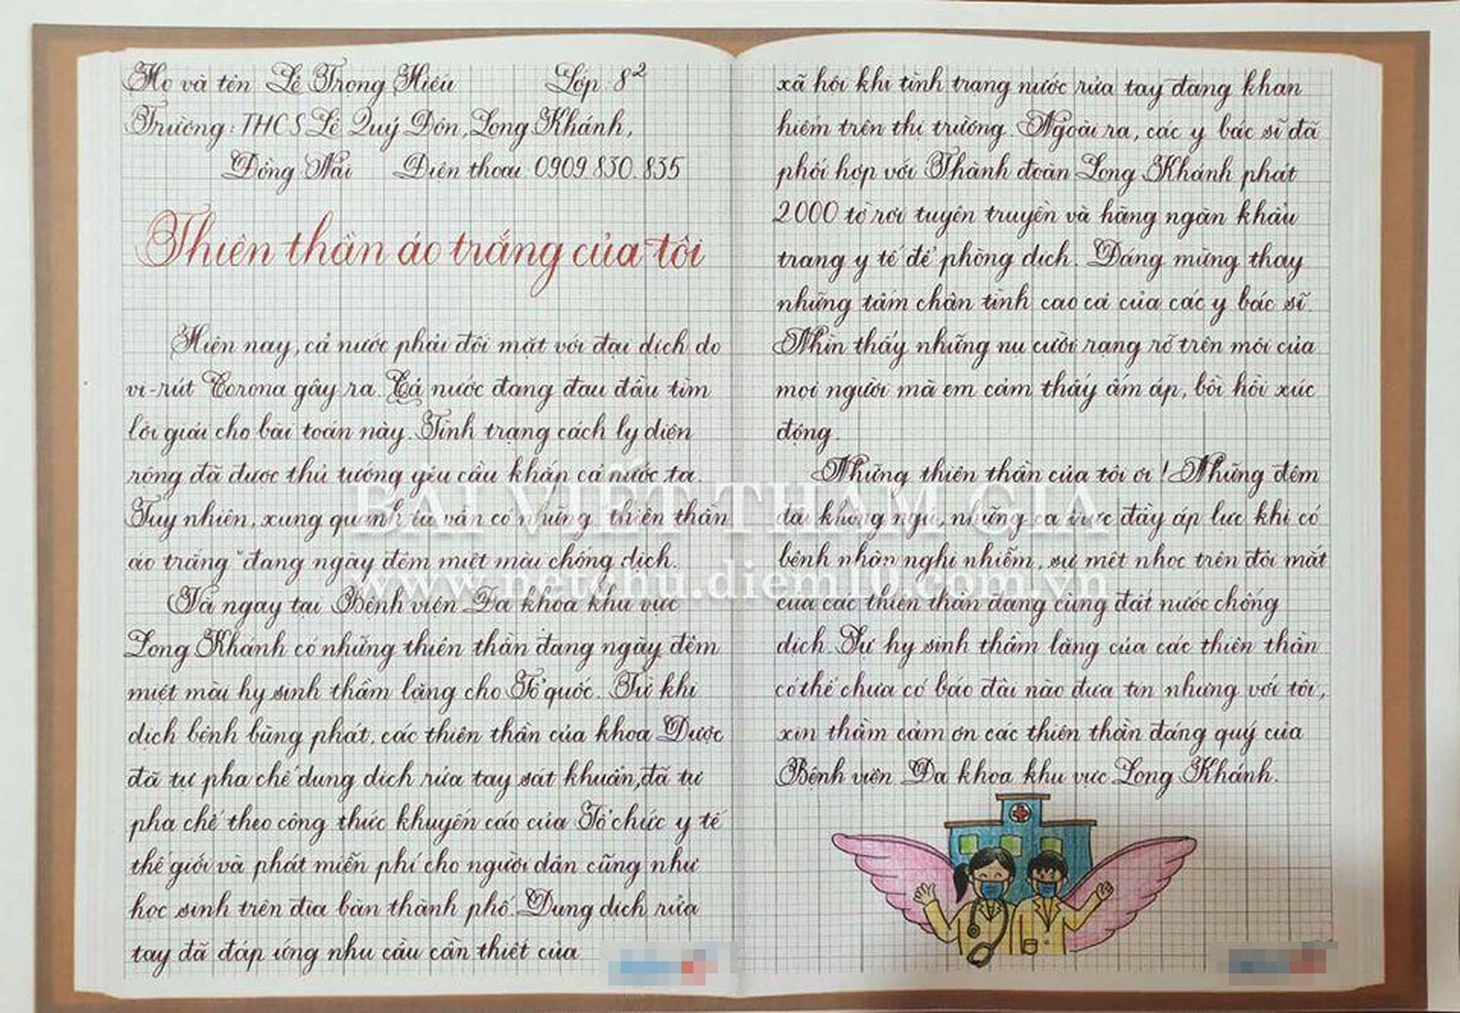 Họ và tên Lê Trọng Hiếu Lớp 8²
Trường: THCS Lê Quý Đôn, Long Khánh,
Đồng Nai Điện thoại 0909.830.835
Thiên thần áo trắng của tôi
Hiện nay, cả nước phải đối mặt với đại dịch do
vi-rút Corona gây ra. Cả nước đang đau đầu tìm
lời giải cho bài toán này. Tình trạng cách ly diện
rộng đã được thủ tướng yêu cầu khắp cả nước ta.
Tuy nhiên, xung quanh ta vẫn có những "thiên thần
áo trắng" đang ngày đêm miệt mài chống dịch.
Và ngay tại Bệnh viện Đa khoa khu vực
Long Khánh có những thiên thần đang ngày đêm
miệt mài hy sinh thầm lặng cho Tổ quốc. Từ khi
dịch bệnh bùng phát, các thiên thần của khoa Dược
đã tự pha chế dung dịch rửa tay sát khuẩn, đã tự
pha chế theo công thức khuyến cáo của Tổ chức y tế
thế giới và phát miễn phí cho người dân cũng như
học sinh trên địa bàn thành phố. Dung dịch rửa
tay đã đáp ứng nhu cầu cần thiết của
xã hội khi tình trạng nước rửa tay đang khan
hiếm trên thị trường. Ngoài ra, các y bác sĩ đã
phối hợp với Thành đoàn Long Khánh phát
2000 tờ rơi tuyên truyền và hàng ngàn khẩu
trang y tế để phòng dịch. Đáng mừng thay
những tấm chân tình cao cả của các y bác sĩ.
Nhìn thấy những nụ cười rạng rỡ trên môi của
mọi người mà em cảm thấy ấm áp, bồi hồi xúc
động.
Những thiên thần của tôi ơi! Những đêm
dài không ngủ, những ca trực đầy áp lực khi có
bệnh nhân nghi nhiễm, sự mệt nhọc trên đôi mắt
của các thiên thần đang cùng đất nước chống
dịch. Sự hy sinh thầm lặng của các thiên thần
có thể chưa có báo đài nào đưa tin nhưng với tôi,
xin thầm cảm ơn các thiên thần đáng quý của
Bệnh viện Đa khoa khu vực Long Khánh.
BÀI VIẾT THAM GIA
www.netchu.diem10.com.vn